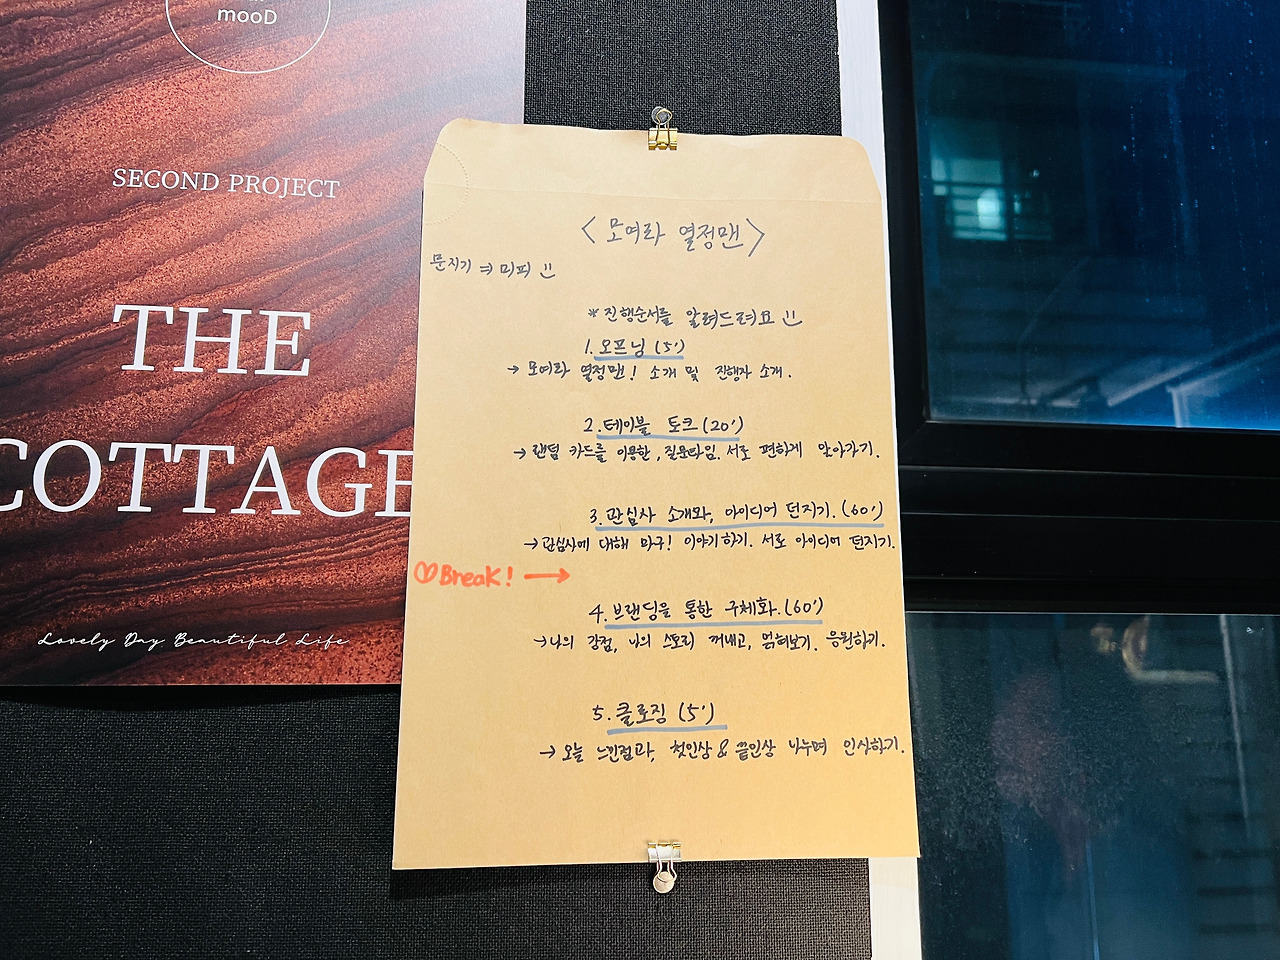 mooD
SECOND PROJECT
THE
COTTAGE
Lovely Day Beautiful Life
<모여라 열정맨>
문지기 => 미피 :)
* 진행순서를 알려드려요 :)
1. 오프닝 (5')
→ 모여라 열정맨! 소개 및 진행자 소개.
2. 테이블 토크 (20')
→ 랜덤 카드를 이용한, 질문타임. 서로 편하게 알아가기.
3. 관심사 소개와, 아이디어 던지기. (60')
→ 관심사에 대해 마구! 이야기하기. 서로 아이디어 던지기.
♡Break! →
4. 브랜딩을 통한 구체화. (60')
→ 나의 강점, 나의 스토리 꺼내고, 얽혀보기. 응원하기.
5. 클로징 (5')
→ 오늘 느낀점과, 첫인상 & 끝인상 나누며 인사하기.